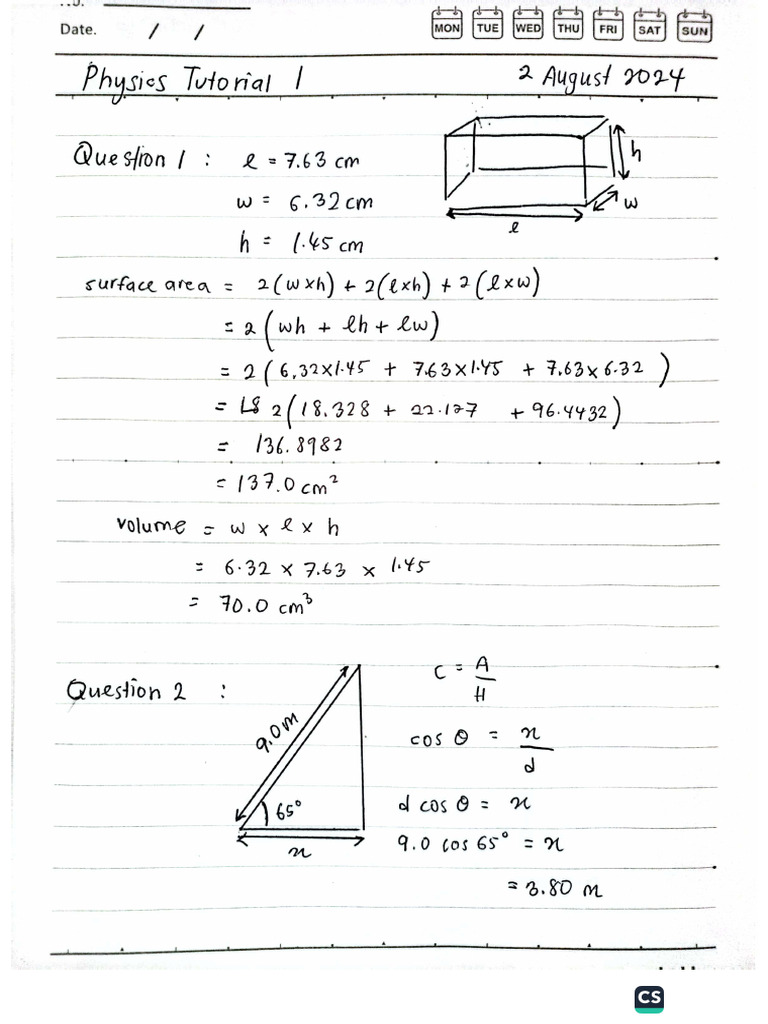 Date. / /
MON TUE WED THU FRI SAT SUN
Physics Tutorial 1 2 August 2024
Question 1 : l = 7.63 cm
w = 6.32 cm
h = 1.45 cm
h
w
l
surface area = 2(w×h) + 2(l×h) + 2(l×w)
= 2(wh + lh + lw)
= 2(6.32×1.45 + 7.63×1.45 + 7.63×6.32)
= 2(18.328 + 22.127 + 96.4432)
= 136.8982
= 137.0 cm²
volume = w × l × h
= 6.32 × 7.63 × 1.45
= 70.0 cm³
Question 2 :
9.0 m
65°
x
C = A/H
cos θ = x/d
d cos θ = x
9.0 cos 65° = x
= 3.80 m
CS